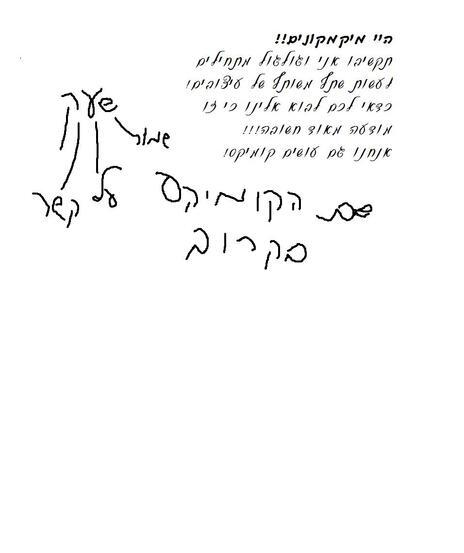 היי מיקמקונים!!
תקשיבו אני וגולגול מתחילים
לעשות שתף משותף של עיצובים!
כדאי לכם לבוא אלינו כי זו
מודעה מאוד חשובה!!!
אנחנו גם עושים קומיקס!
שעק
שמור
על
קשר
שם הקומיקס
בקרוב